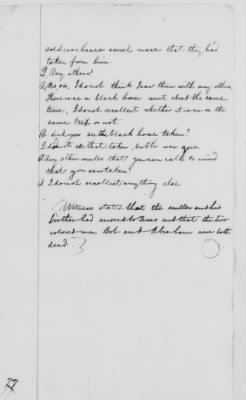 soldiers horses came more that they had
taken from him
Q Any others?
A No sir, I do not think I saw them with any other.
There was a black horse went about the same
time, I do not recollect whether it was on the
same trip or not
Q did you see the black horse taken?
I did not see that taken, but he was gone.
Q Any other mules that you can call to mind
that you saw taken?
A I do not recollect anything else
(Witness states that the miller and his
brother had moved to Texas and that the two
colored men Bob and Abraham were both
dead.)
27